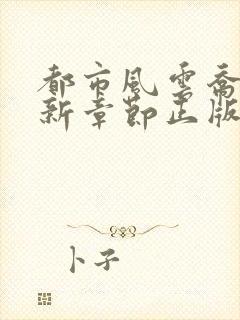 都市風雲喬
新章節正版
卜子